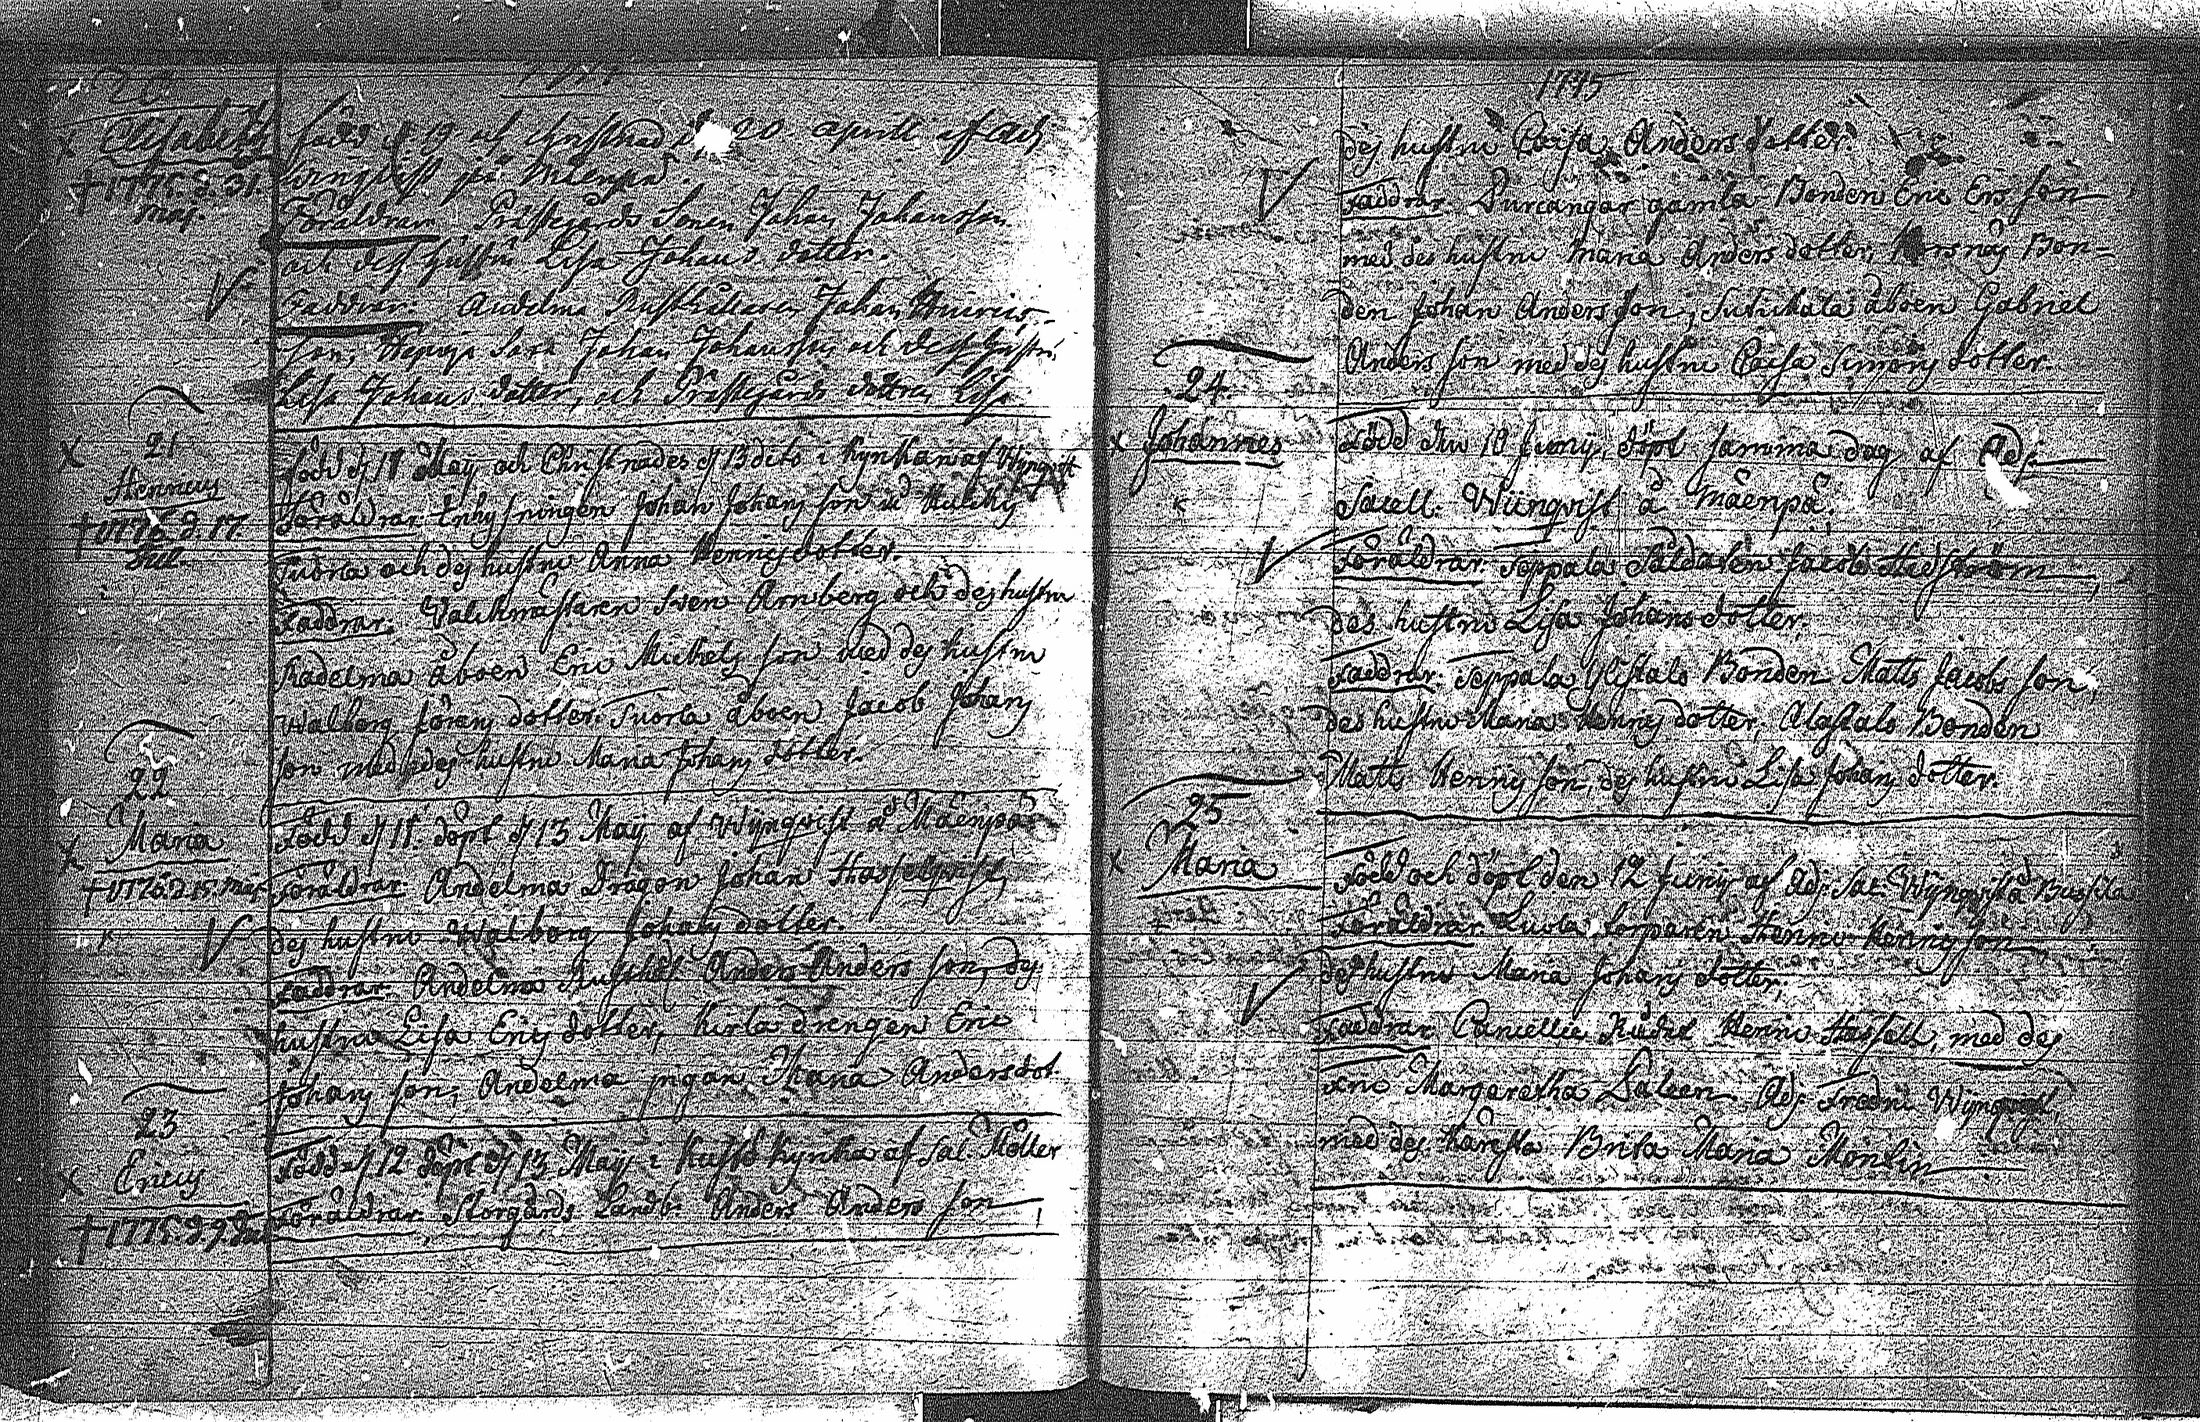 20
Elisabeth
† 1775. d. 31.
maj.
född d. 19 och Christnad d. 20 aprill af Adj.
Wijnqvist på Mäenpä.
Föräldrar Prästegårds Sonen Johan Johansson
och dess hustru Lisa Johans dotter.
Faddrar: Andelma Rusthållaren Johan Henrics-
son, Johan Johansson och dess hustru
Lisa Johans dotter, och Prästgårds dottren Lisa
21
Henricus
† 1775 d. 17.
Jul.
Född d 11 May och Christnades d 13 dito i Kyrkan af Wijnqvist
Föräldrar Inhysningen Johan Johans son
Suorla och des hustru Anna Henrics dotter.
Faddrar: Walckmästaren Sven Arnberg och des hustru
Kadelma åboen Eric Michels son med des hustru
Walborg Jörans dotter. Suorla åboen Jacob Johans
son med des hustru Maria Johans dotter.
22
Maria
† 1775. d. 15. maj.
Född d 11. döpt d 13 Maÿ af Wijnqvist å Mäenpä
Föräldrar Andelma Dragon Johan Hasselqvist,
des hustru Walborg Johans dotter.
Faddrar. Andelma Rusthål. Anders Anders son, des
hustru Lisa Erics dotter, Kirla drengen Eric
Johans son, Andelma pigan Maria Anders dot.
23
Ericus
† 1775. d. 9. Jul.
Född d. 12 döpt d 13 Maÿ i Kusto Kyrka af Sal. Möller
Föräldrar. Storgårds Landb. Anders Anders son
1775
des hustru Caisa Anders dotter.
Faddrar. gamla Bonden Eric Ers son
med des hustru Maria Anders dotter, Korsnäs Bon-
den Johan Anders son, åboen Gabriel
Anders son med des hustru Caisa Simons dotter.
24.
Johannes
Född den 10 Junij, döpt samma dag af Adj.
Sacell. Wiinqvist å Mäenpä.
Föräldrar. Seppala Saldaten Jacob
des hustru Lisa Johans dotter,
Faddrar. Seppala Ylistalo Bonden Matts Jacobs son,
des hustru Maria Henrics dotter, Alastalo Bonden
Matts Henrics son, des hustru Lisa Johans dotter.
25
Maria
Född och döpt den 12 Junij af Adj. Sac. Wijnqvist å
Föräldrar Torparen Henric Henrics son
des hustru Maria Johans dotter,
Faddrar Henric Hassell, med des
Fru Margaretha Adj. Fredric Wijnqvist,
med des käresta Brita Maria Montin